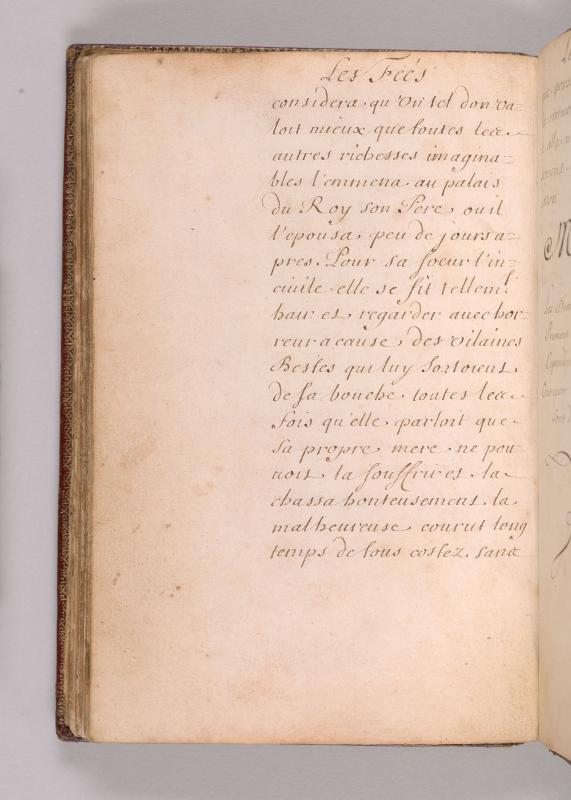 Les Feés
considera qu'un tel don va=
loit mieux que toutes les
autres richesses imagina=
bles l'emmena au palais
du Roy son Pere, ou il
l'epousa peu de jours a=
pres. Pour sa soeur l'in=
civile elle se fit tellemt.
hair et regarder avec hor=
reur a cause des vilaines
Bestes qui luy sortoient
de sa bouche toutes les
fois qu'elle parloit que
sa propre mere ne pou
voit la souffrir et la
chassa honteusement. la
malheureuse courut long
temps de tous costez sans